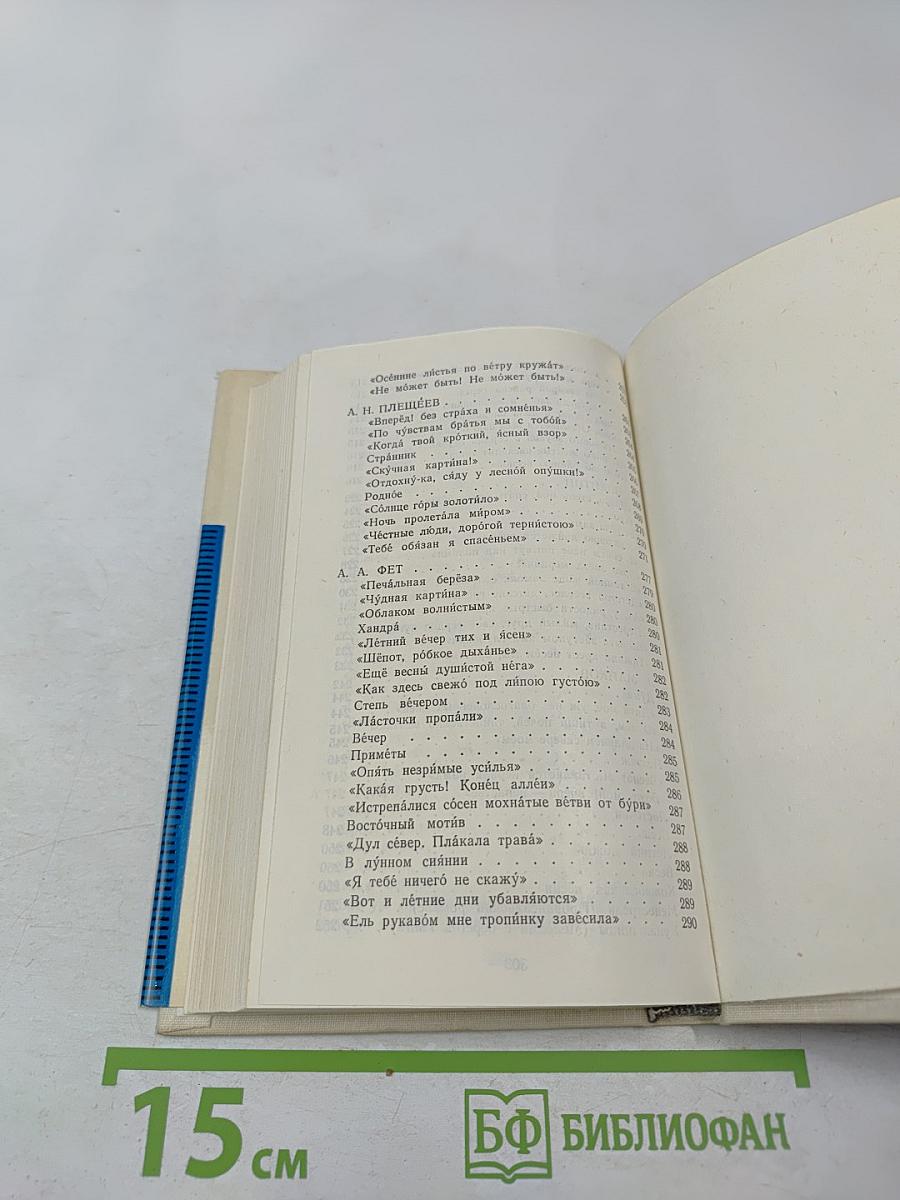 «Осе́нние ли́стья по ве́тру кружа́т» . . . .
«Не мо́жет быть! Не мо́жет быть!» . . .
А. Н. ПЛЕЩЕ́ЕВ . . . . . . . . . .
«Вперёд! без стра́ха и сомне́нья» . . . .
«По чу́вствам бра́тья мы с тобо́й» . . . .
«Когда́ твой кро́ткий, я́сный взор» . . . .
Стра́нник . . . . . . . . . .
«Ску́чная карти́на!» . . . . . . . .
«Отдохну́-ка, ся́ду у лесно́й опу́шки!» . .
Родно́е . . . . . . . . . .
«Со́лнце го́ры золоти́ло» . . . . . . . 268
«Ночь пролета́ла ми́ром» . . . . . . .
«Че́стные лю́ди, доро́гой терни́стою» . . . 270
«Тебе́ обя́зан я спасе́ньем» . . . . . . 271
А. А. ФЕТ . . . . . . . . . . 277
«Печа́льная берёза» . . . . . . . . 279
«Чу́дная карти́на» . . . . . . . . 280
«Облаком волни́стым» . . . . . . . 280
Хандра́ . . . . . . . . . . 280
«Ле́тний ве́чер тих и я́сен» . . . . . . 281
«Шёпот, ро́бкое дыха́нье» . . . . . . 281
«Ещё весны́ души́стой не́га» . . . . . . 282
«Как здесь свежо́ под ли́пою густо́ю» . . . 282
Степь ве́чером . . . . . . . . . 283
«Ла́сточки пропа́ли» . . . . . . . . 284
Ве́чер . . . . . . . . . . 284
Приме́ты . . . . . . . . . . 285
«Опя́ть незри́мые уси́лья» . . . . . . 285
«Кака́я грусть! Коне́ц алле́и» . . . . . 286
«Истрепа́лися со́сен мохна́тые ве́тви от бу́ри» 287
Восто́чный моти́в . . . . . . . . 287
«Дул се́вер. Пла́кала трава́» . . . . . . 288
В лу́нном сия́нии . . . . . . . . 288
«Я тебе́ ничего́ не скажу́» . . . . . . 289
«Вот и ле́тние дни убавля́ются» . . . . . 289
«Ель рукаво́м мне тропи́нку заве́сила» . . . 290
15 см
БФ БИБЛИОФАН